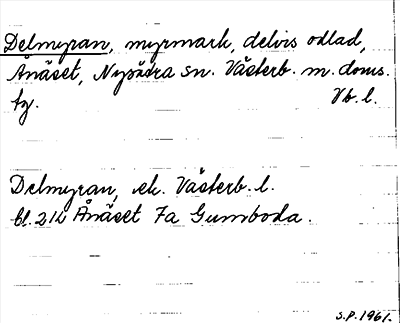 Delmyran, myrmark, delvis odlad,
Ånäset, Nysätra sn. Västerb. m. doms.
tg. Vb. l.
Delmyran, ek. Västerb. l.
bl. 21k Ånäset 7a Gumboda.
S.P. 1961.